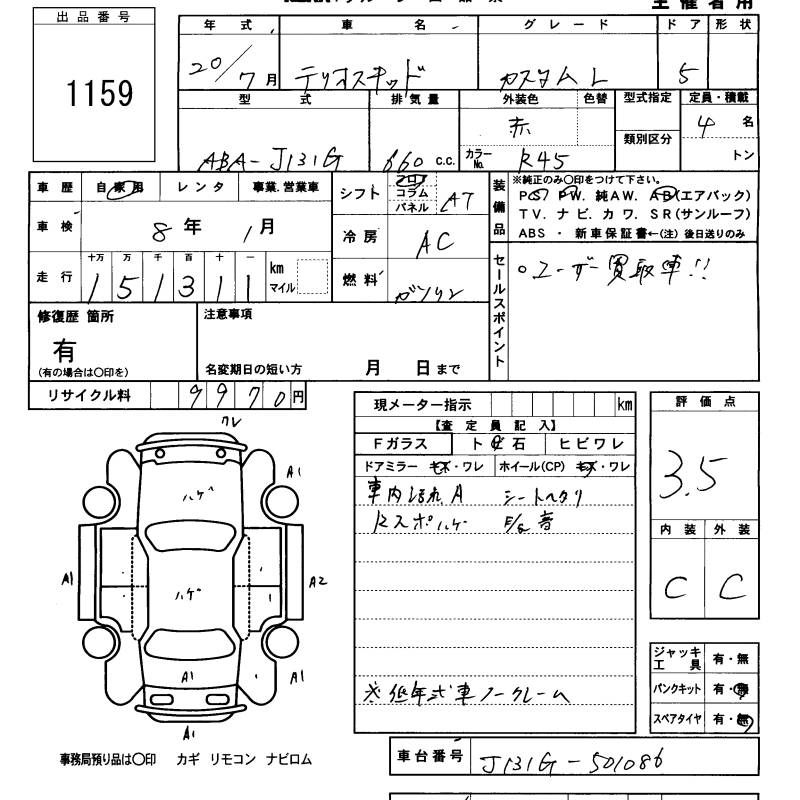 主催者用
出品番号
1159
年式 車名 グレード ドア 形状
20/7月 テリオスキッド カスタムL 5
型式 排気量 外装色 色替 型式指定 定員・積載
赤 4名
類別区分
ABA-J131G 660 c.c. カラーNo. R45 トン
車歴 自家用 レンタ 事業.営業車
シフト フロア コラム パネル AT
車検 8年1月
冷房 AC
走行 十万 万 千 百 十 一
151311 km マイル
燃料 ガソリン
装備品
※純正のみ〇印をつけて下さい。
PS PW. 純AW. AB(エアバック)
TV. ナビ. カワ. SR(サンルーフ)
ABS ・ 新車保証書←(注) 後日送りのみ
セールスポイント
○ユーザー買取車!!
修復歴 箇所
有
(有の場合は〇印を)
注意事項
名変期日の短い方 月 日まで
リサイクル料 9970円
現メーター指示 km
【査定員記入】
Fガラス ト 石 ヒビワレ
ドアミラー キズ・ワレ ホイール(CP) キズ・ワレ
車内汚れA シートヘタリ
Rスポハゲ F/G音
※低年式車ノークレーム
評価点
3.5
内装 外装
C C
ジャッキ工具 有・無
パンクキット 有・無
スペアタイヤ 有・無
ワレ
A1
ハゲ
A1
A2
ハゲ
A1
A1
A1
事務局預り品は〇印 カギ リモコン ナビロム
車台番号 J131G-501086